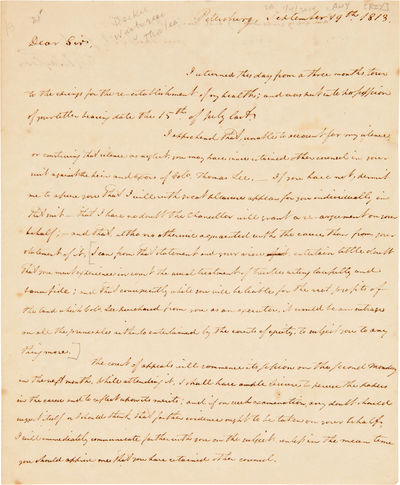 Petersburg September 19th 1813.
Dear Sir,
I returned this day from a three months tour
to the springs for the re-establishment of my health; and was put into possession
of your letter bearing date the 15th of July last.
I apprehend that, unable to account for my silence
or construing that silence as neglect, you may have since retained other council in your
suit against the heirs and of Colo. Thomas Lee. — If you have not, permit
me to assure you that I will with great pleasure appear for you individually in
that suit — that I have no doubt the Chancellor will grant a re-argument on your
behalf; — and that altho no otherwise acquainted with the cause than from your
statement of it, [I can from that statement and your entertain little doubt
that you must experience in court the usual treatment of trustees acting lawfully and
bona fide; and that consequently while you will be liable for the rest, profits of
the land which Colo. Lee purchased from you as an executor, it would be an outrage
on all the principles hitherto entertained by the courts of equity, to subject you to any
thing more.]
The court of appeals will commence its session on the second Monday
in the next month. While attending it, I shall have ample leisure to peruse the papers
in the cause and to reflect upon its merits; and if on such examination any doubt should
suggest itself or I should think that farther evidence ought to be taken on your behalf,
I will immediately communicate farther with you on the subject unless in the mean time
you should apprise me that you have retained other council.